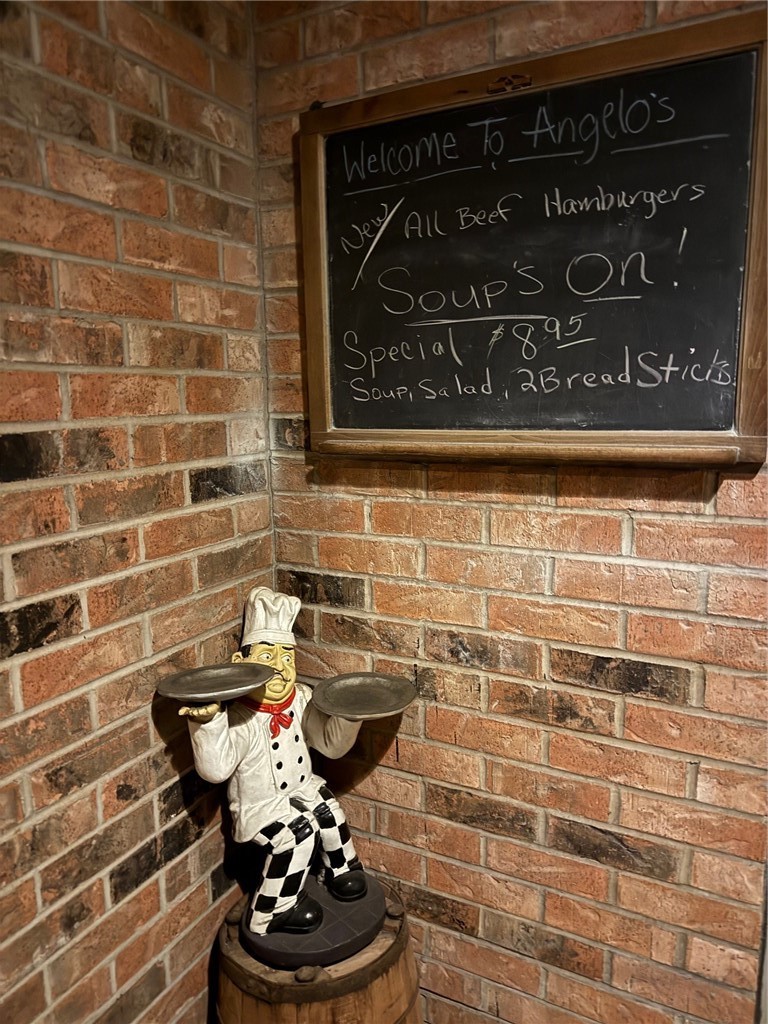 Welcome To Angelo's
New/ All Beef Hamburgers
Soup's On!
Special $8.95
Soup, Salad, 2 Bread Sticks